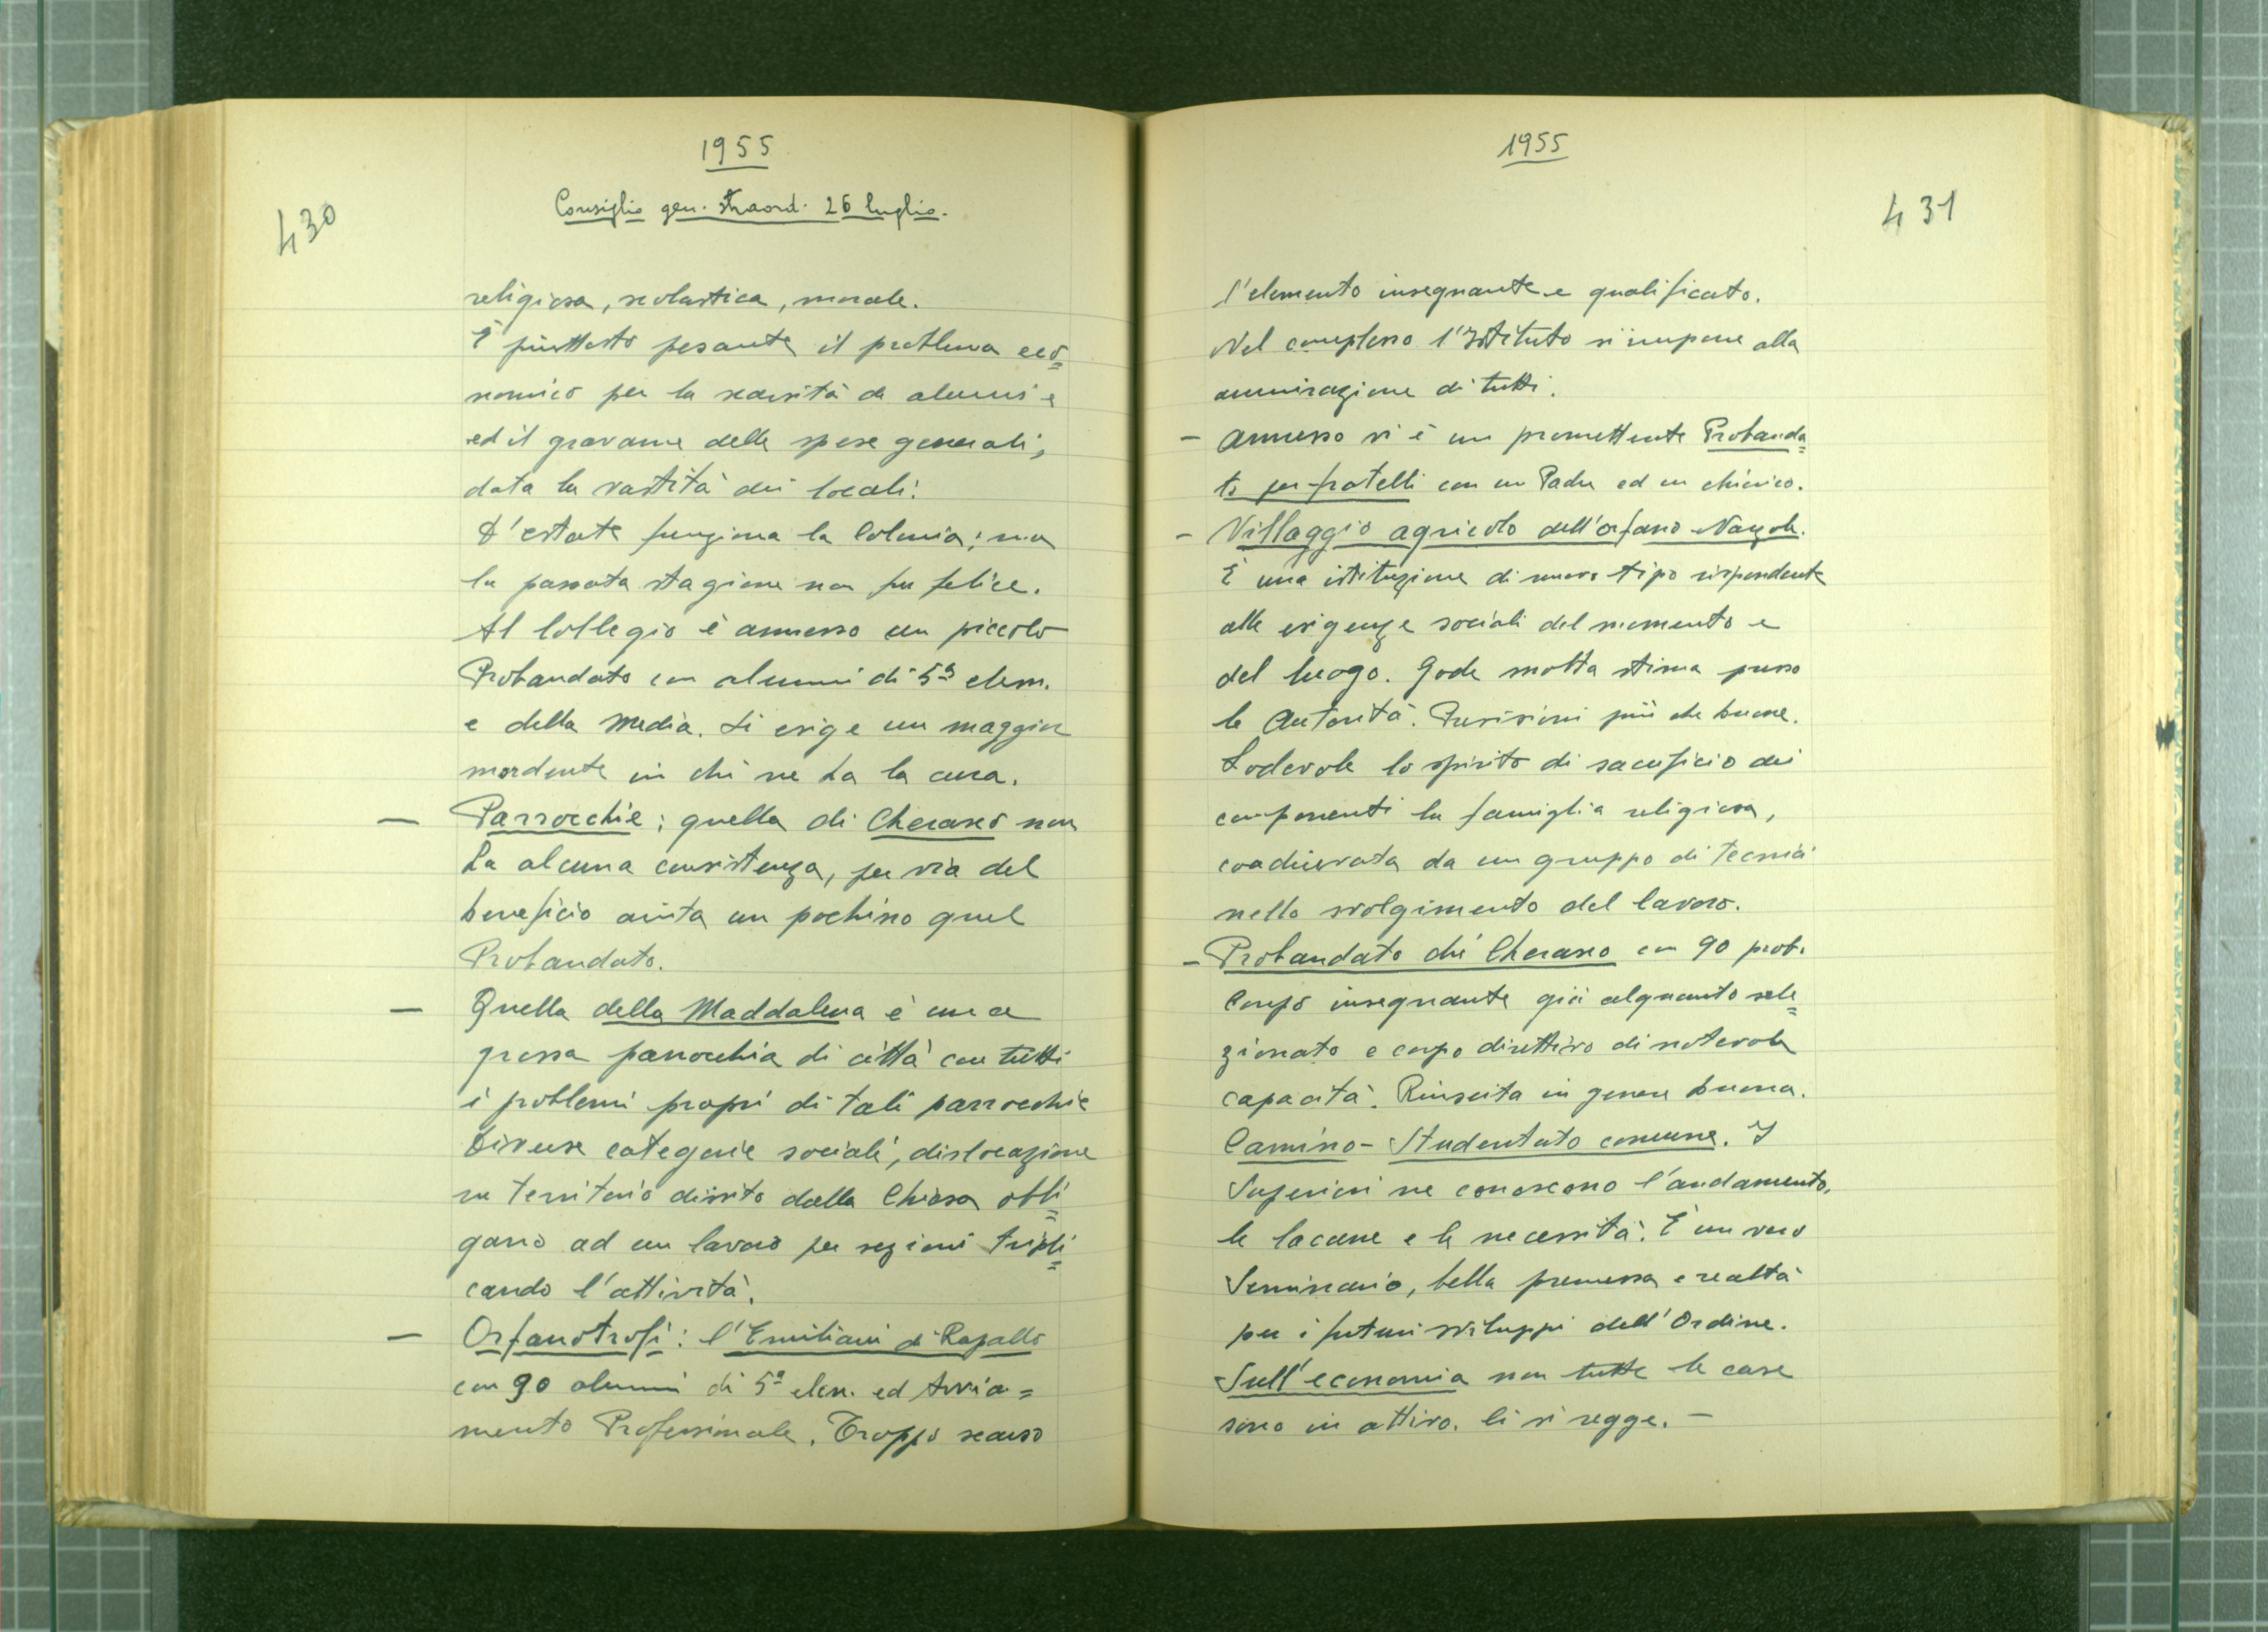 1955
Consiglio gen. straord. 26 luglio.
430
religiosa, scolastica, morale.
È piuttosto pesante il problema eco=
nomico per la scarsità di alunni e
ed il gravame delle spese generali,
data la vastità dei locali.
D'estate funziona la Colonia; ma
la passata stagione non fu felice.
Al Collegio è annesso un piccolo
Probandato con alunni di 5ª elem.
e della Media. Si esige un maggior
mordente in chi ne ha la cura.
— Parrocchie: quella di Cherasco non
ha alcuna consistenza, per via del
beneficio aiuta un pochino quel
Probandato.
— Quella della Maddalena è una
grossa parrocchia di città con tutti
i problemi propri di tali parrocchie
Diverse categorie sociali, dislocazione
in territorio diviso dalla Chiesa obbli=
gano ad un lavoro per sezioni tripli=
cando l'attività.
— Orfanotrofi: l'Emiliani di Rapallo
con 90 alunni di 5ª elem. ed Avvia=
mento Professionale. Troppo scarso
1955
431
l'elemento insegnante e qualificato.
Nel complesso l'Istituto si impone alla
ammirazione di tutti.
- Annesso vi è un promettente Probanda=
to per fratelli con un Padre ed un chierico.
- Villaggio agricolo dell'orfano Narzole.
È una istituzione di nuovo tipo rispondente
alle esigenze sociali del momento e
del luogo. Gode molta stima presso
le Autorità. Previsioni più che buone.
Lodevole lo spirito di sacrificio dei
componenti la famiglia religiosa,
coadiuvata da un gruppo di tecnici
nello svolgimento del lavoro.
- Probandato di Cherasco con 90 prob.
Corpo insegnante già alquanto sele=
zionato e corpo direttivo di notevole
capacità. Riuscita in genere buona.
Camino - Studentato comune. I
Superiori ne conoscono l'andamento,
le lacune e le necessità. È un vero
Seminario, bella promessa e realtà
per i futuri sviluppi dell'Ordine.
Sull'economia non tutte le case
sono in attivo. Ci si regge. —